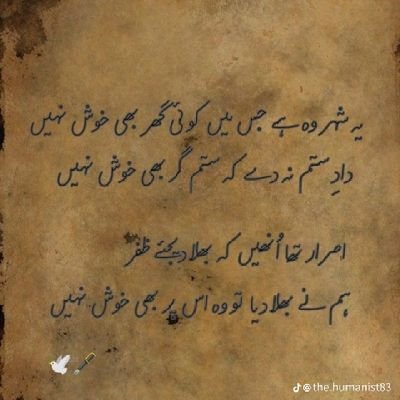 یہ شہر وہ ہے جس میں کوئی گھر بھی خوش نہیں
دادِ ستم نہ دے کہ ستم گر بھی خوش نہیں
اصرار تھا اُنھیں کہ بھلا دیجئے ظفر
ہم نے بھلا دیا تو وہ اس پر بھی خوش نہیں
@the.humanist83